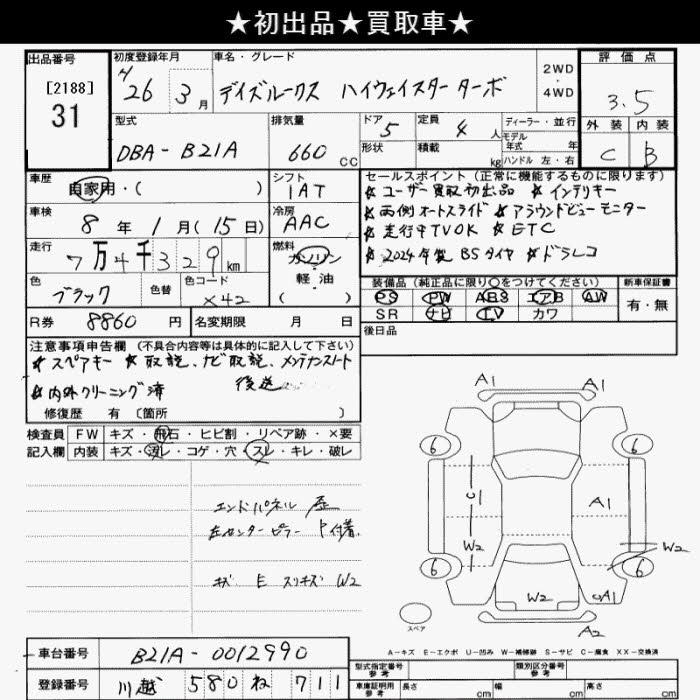 ★初出品★買取車★
出品番号
[2188]
31
初度登録年月
H26年 3月
車名・グレード
デイズルークス ハイウェイスターターボ
2WD
・
4WD
評価点
3.5
外装 内装
C B
型式
DBA-B21A
排気量
660CC
ドア 5
形状
定員 4人
積載 kg
ディーラー・並行
モデル
年式 年
ハンドル 左・右
車歴
自家用・( )
シフト
IAT
車検
8年1月(15日)
冷房
AAC
走行
7万4千329km
燃料
ガソリン
・
軽・油
( )
色
ブラック
色替
色コード
X42
R券 8860円
名変期限 月 日
セールスポイント(正常に機能するものに限ります)
★ユーザー買取初出品 ★インテリキー
★両側オートスライド ★アラウンドビューモニター
★走行中TVOK ★ETC
★2024年製BSタイヤ ★ドラレコ
装備品(純正品に限り○をつけてください)
新車保証書
PS PW ABS エアB AW
SR ナビ TV カワ
有・無
後日品
注意事項申告欄(不具合内容等は具体的に記入して下さい)
★スペアキー ★取説、ナビ取説、メンテナンスノート
後送
★内外クリーニング済
修復歴 有 〔箇所 〕
検査員
記入欄
FW キズ・飛石・ヒビ割・リペア跡・×要
内装 キズ・汚レ・コゲ・穴・スレ・キレ・破レ
エンドパネル 歪
左センターピラー P付着
キズ E スリキズ W2
A1 A1
6 6
C1 A1
W2 W2
6 6
W2 A1
A2
スペア
A-キズ E-エクボ U-凹み W-補修跡 S-サビ C-腐食 XX-交換済
車台番号 B21A-0012990
登録番号 川越 580 ね 711
型式指定番号
参考
類別区分番号
参考
車庫証明用
参考
長さ cm
幅 cm
高さ cm